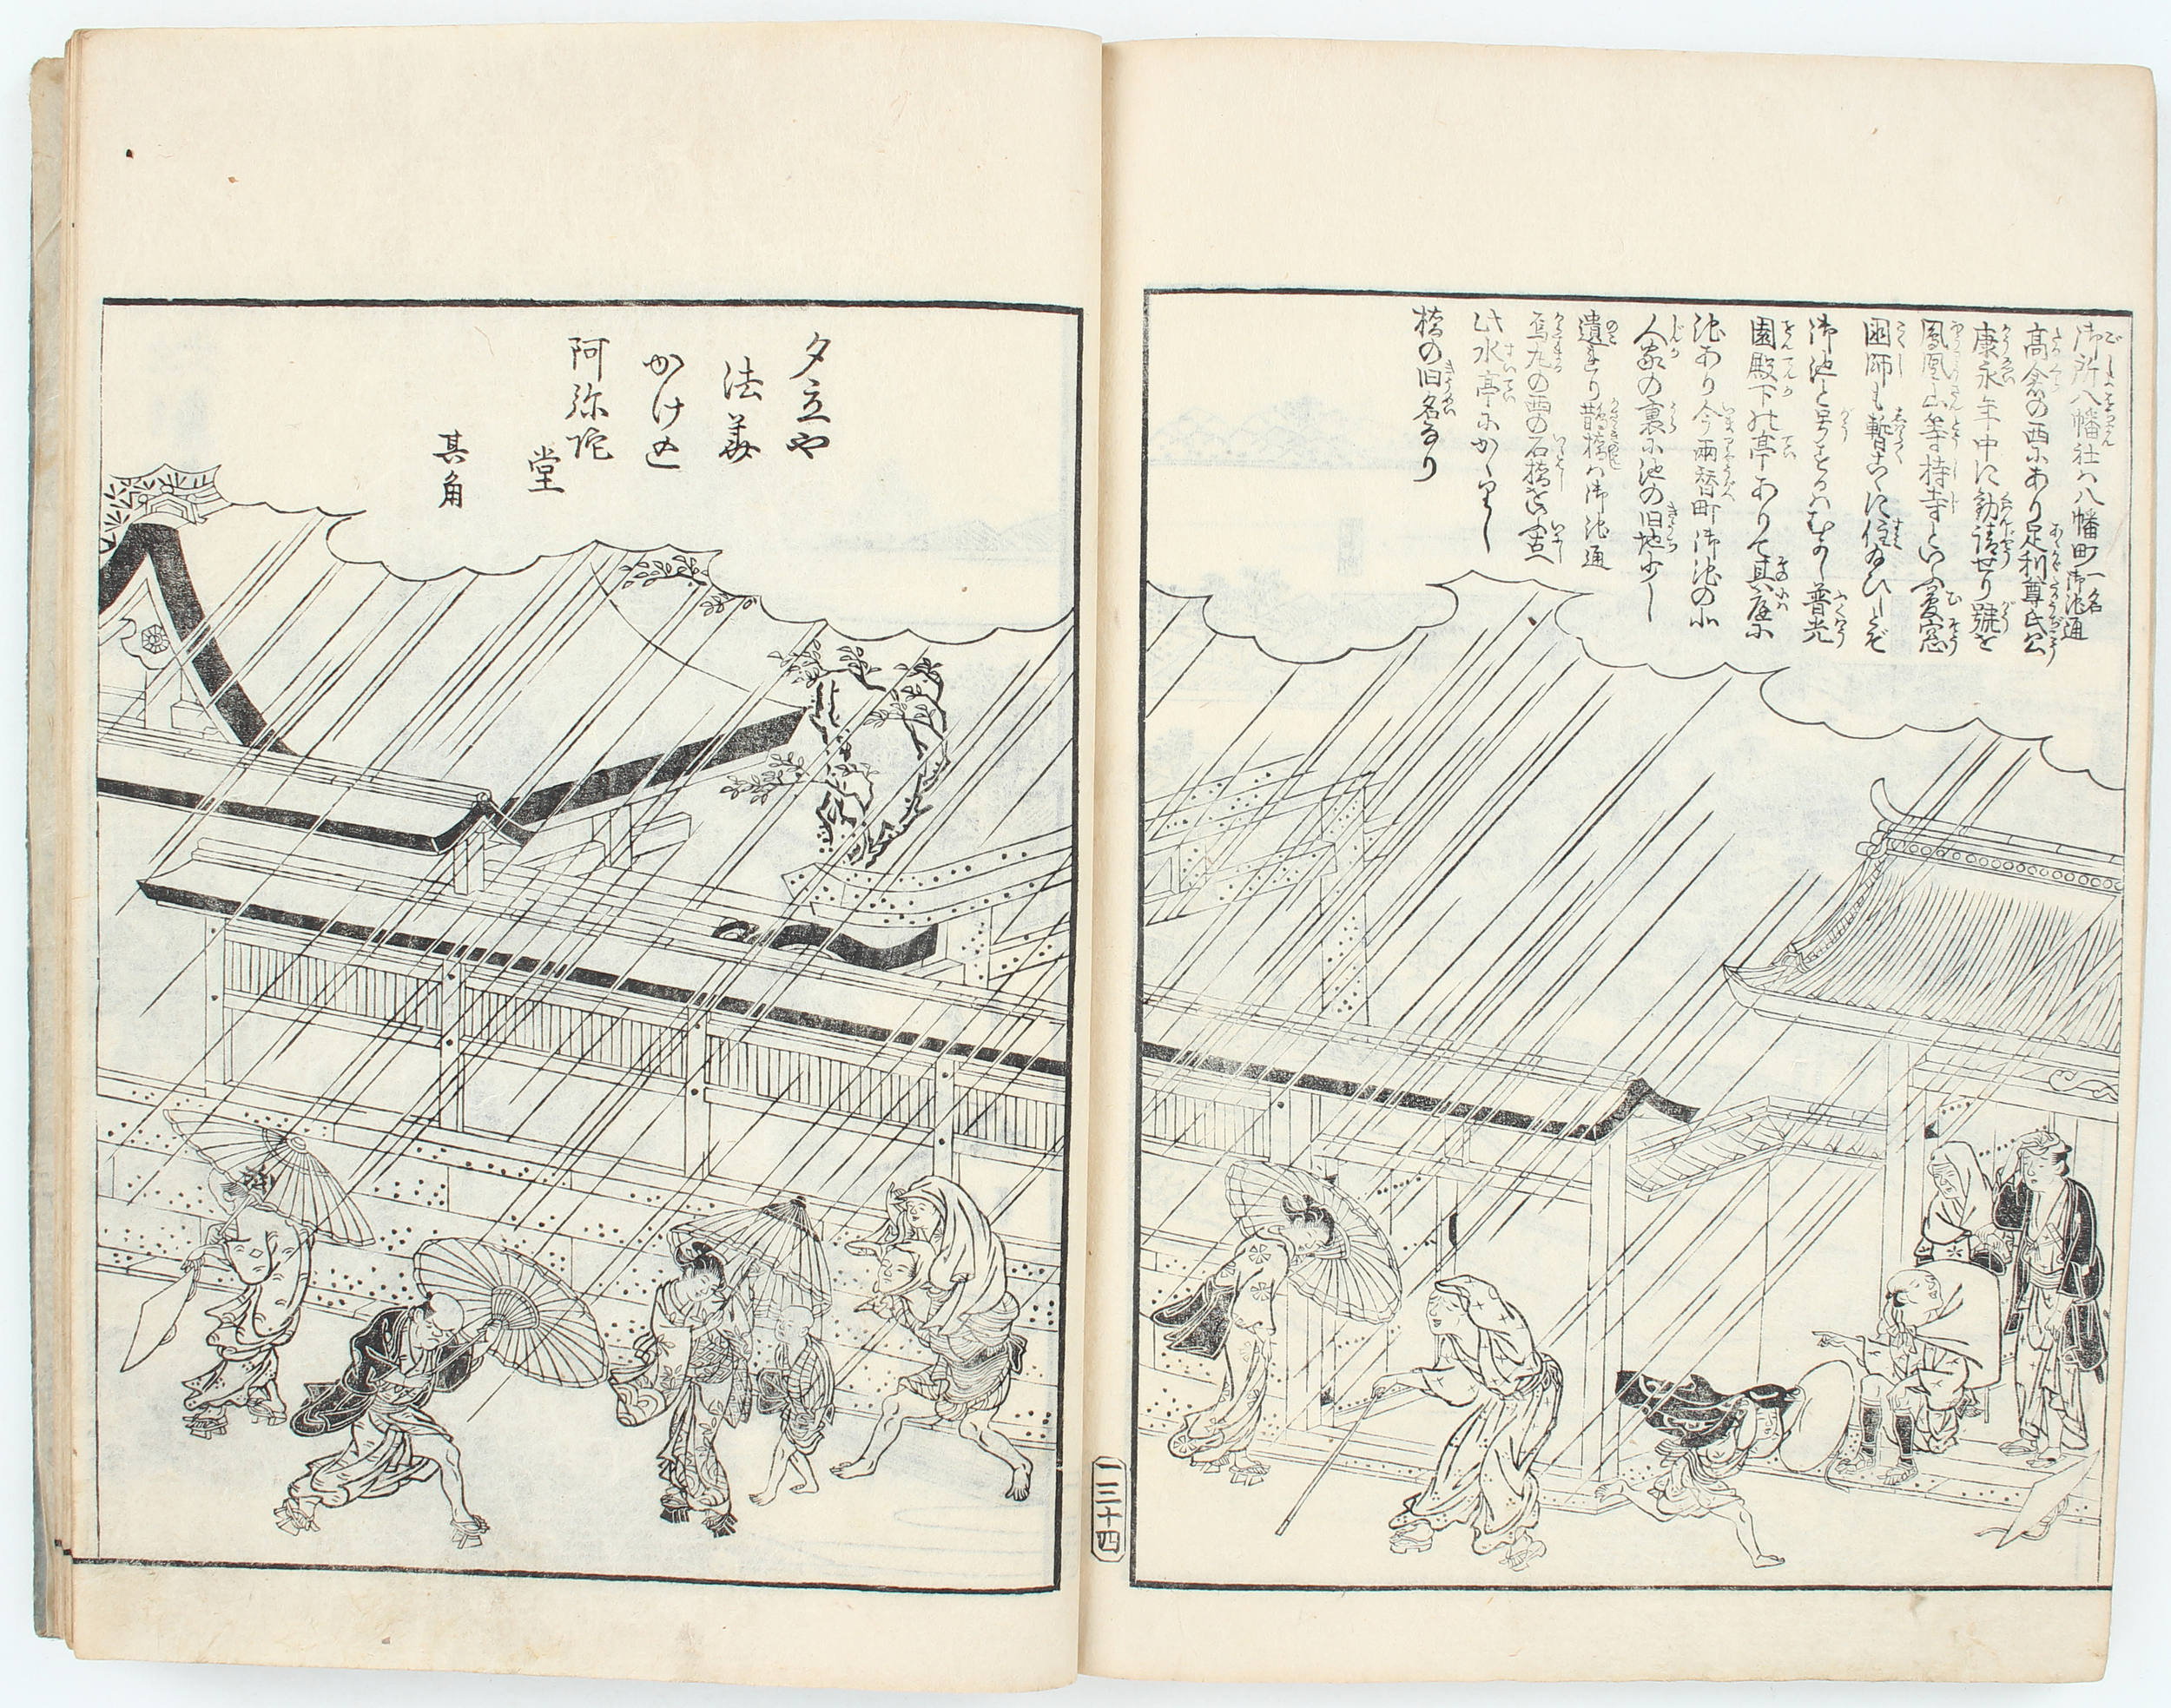 御所八幡社ハ八幡町一名御池通
高倉の西にあり足利尊氏公
康永年中に勧請せり號を
鳳凰山等持寺といふ夢窓
国師も暫こゝに住給ひしとぞ
御池と号するハむかし普光
園殿下の亭ありて其庭に
池あり今両替町御池の北
人家の裏に池の旧地少し
遺れり昔橋ハ御池通
烏丸の西の石橋をいふ古へ
此水亭にかゝりし
橋の旧名なり
夕立や
法華
かけ込
阿弥陀
堂
其角
一三十四